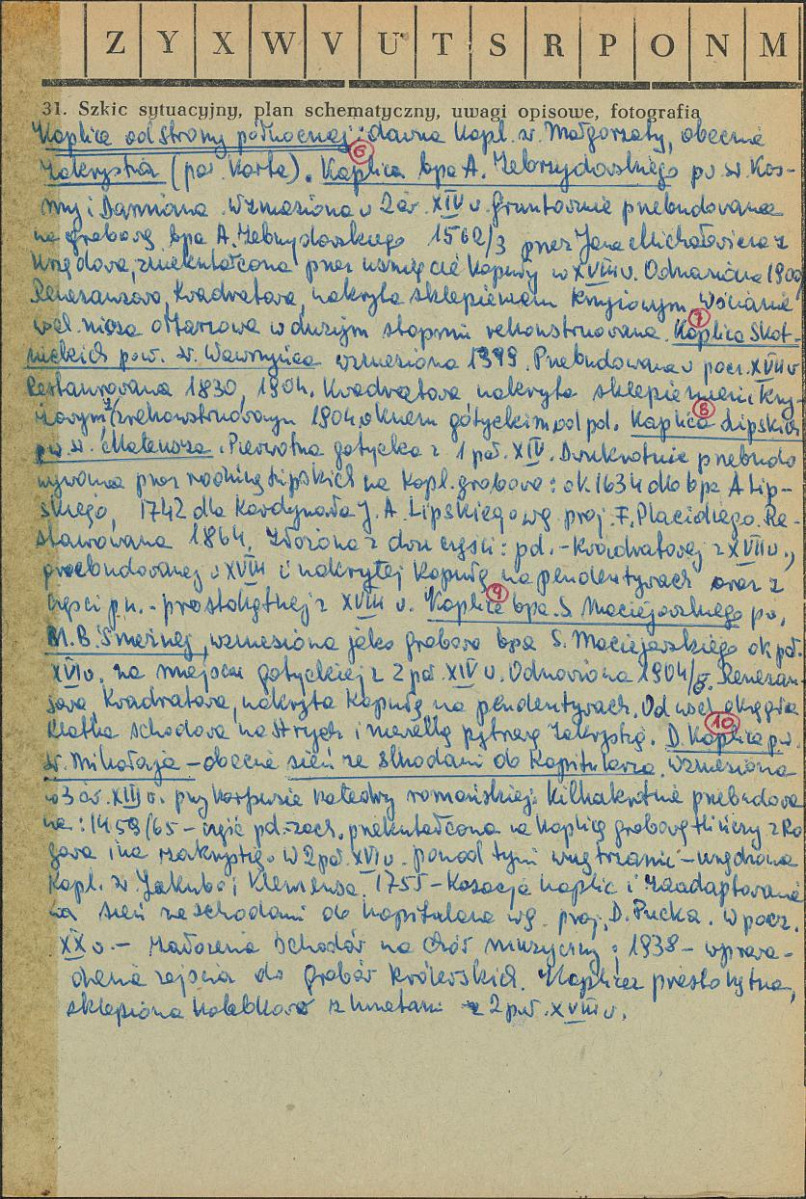 Z Y X W V U T S R P O N M
31. Szkic sytuacyjny, plan schematyczny, uwagi opisowe, fotografia
Kaplice od strony północnej: dawna kapl. św. Małgorzaty, obecnie
zakrystia (por. karta). 6 Kaplica bpa A. Zebrzydowskiego pw św. Kos-
my i Damiana. Wzniesiona w 2 ćw. XIV w. Gruntownie przebudowana
na grobową bpa A. Zebrzydowskiego 1562/3 przez Jana Michałowicza z
Urzędowa, zniekształcona przez usunięcie kopuły w XVIII w. Odnawiana 1900
Renesansowa, kwadratowa, nakryta sklepieniem krzyżowym, w ścianie
wsch. nisza ołtarzowa w dużym stopniu rekonstruowana. 7 Kaplica Skot-
nickich pow. św. Wawrzyńca wzniesiona 1399. Przebudowana w pocz. XVII w
Restaurowana 1830, 1904. Kwadratowa, nakryta sklepieniem krzy-
żowym, z rekonstruowanym 1904 oknem gotyckim od pd. 8 Kaplica Lipskich
pw. św. Mateusza. Pierwotna gotycka z 1 poł. XIV. Dwukrotnie przebudo
wywana przez rodzinę Lipskich na kapl. grobową: ok. 1634 dla bpa A Lip-
skiego, 1742 dla Kardynała J. A. Lipskiego wg proj. F. Placidiego. Re-
staurowana 1864. Złożona z dwu części: pd. - kwadratowej z XVII w.,
przebudowanej w XVIII i nakrytej kopułą na pendentywach oraz z
części pn. - prostokątnej z XVIII w. 9 Kaplica bpa. S. Maciejowskiego pw.
M.B. Śnieżnej, wzniesiona jako grobowa bpa S. Maciejowskiego ok. poł.
XVI w. na miejscu gotyckiej z 2 poł. XIV w. Odnowiona 1904/5. Renesan-
sowa kwadratowa, nakryta kopułą na pendentywach. Od wsch. okrągła
klatka schodowa na strych i niewielką piętrową zakrystię. 10 D. Kaplica pw.
św. Mikołaja - obecnie sień ze schodami do kapitularza. Wzniesiona
w 3 ćw. XIII w. przy korpusie katedry romańskiej. Kilkakrotnie przebudowa
na: 1459/65 - część pd.-zach. przekształcona na kaplicę grobową Hińczy z Ro
gowa i na zakrystię. w 2 poł. XVI w. ponad tymi wnętrzami - urządzono
kapl. św. Jakuba i Klemensa. 1755 - kasacja kaplic i zaadaptowanie
na sień ze schodami do kapitularza wg. proj. D. Pucka. W pocz.
XX w. - założenie schodów na chór muzyczny; 1838 - wprowa-
dzenie zejścia do grobów królewskich. Kaplica prostokątna,
sklepiona kolebkowo z lunetami z 2 poł. XVIII w.